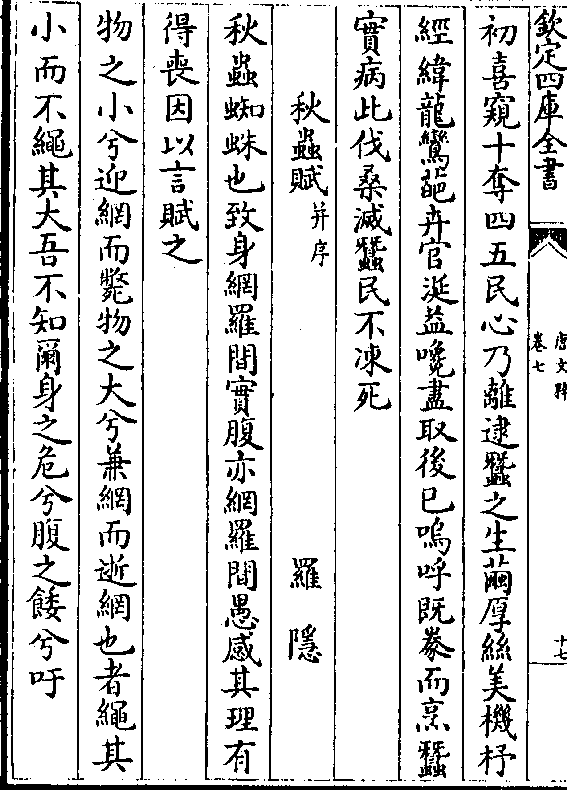 欽定四庫全書
唐文粹
卷七
十七
初喜窺十奪四五民心乃離逮蠶之生繭厚絲美機杼
經緯龍鸞葩卉官涎益嚵盡取後已嗚呼既豢而烹蠶
實病此伐桑滅蠶民不凍死
秋蟲賦并序
羅隱
秋蟲蜘蛛也致身網羅間實腹亦網羅間愚感其理有
得喪因以言賦之
物之小兮迎網而斃物之大兮兼網而逝網也者繩其
小而不繩其大吾不知爾身之危兮腹之餧兮吁